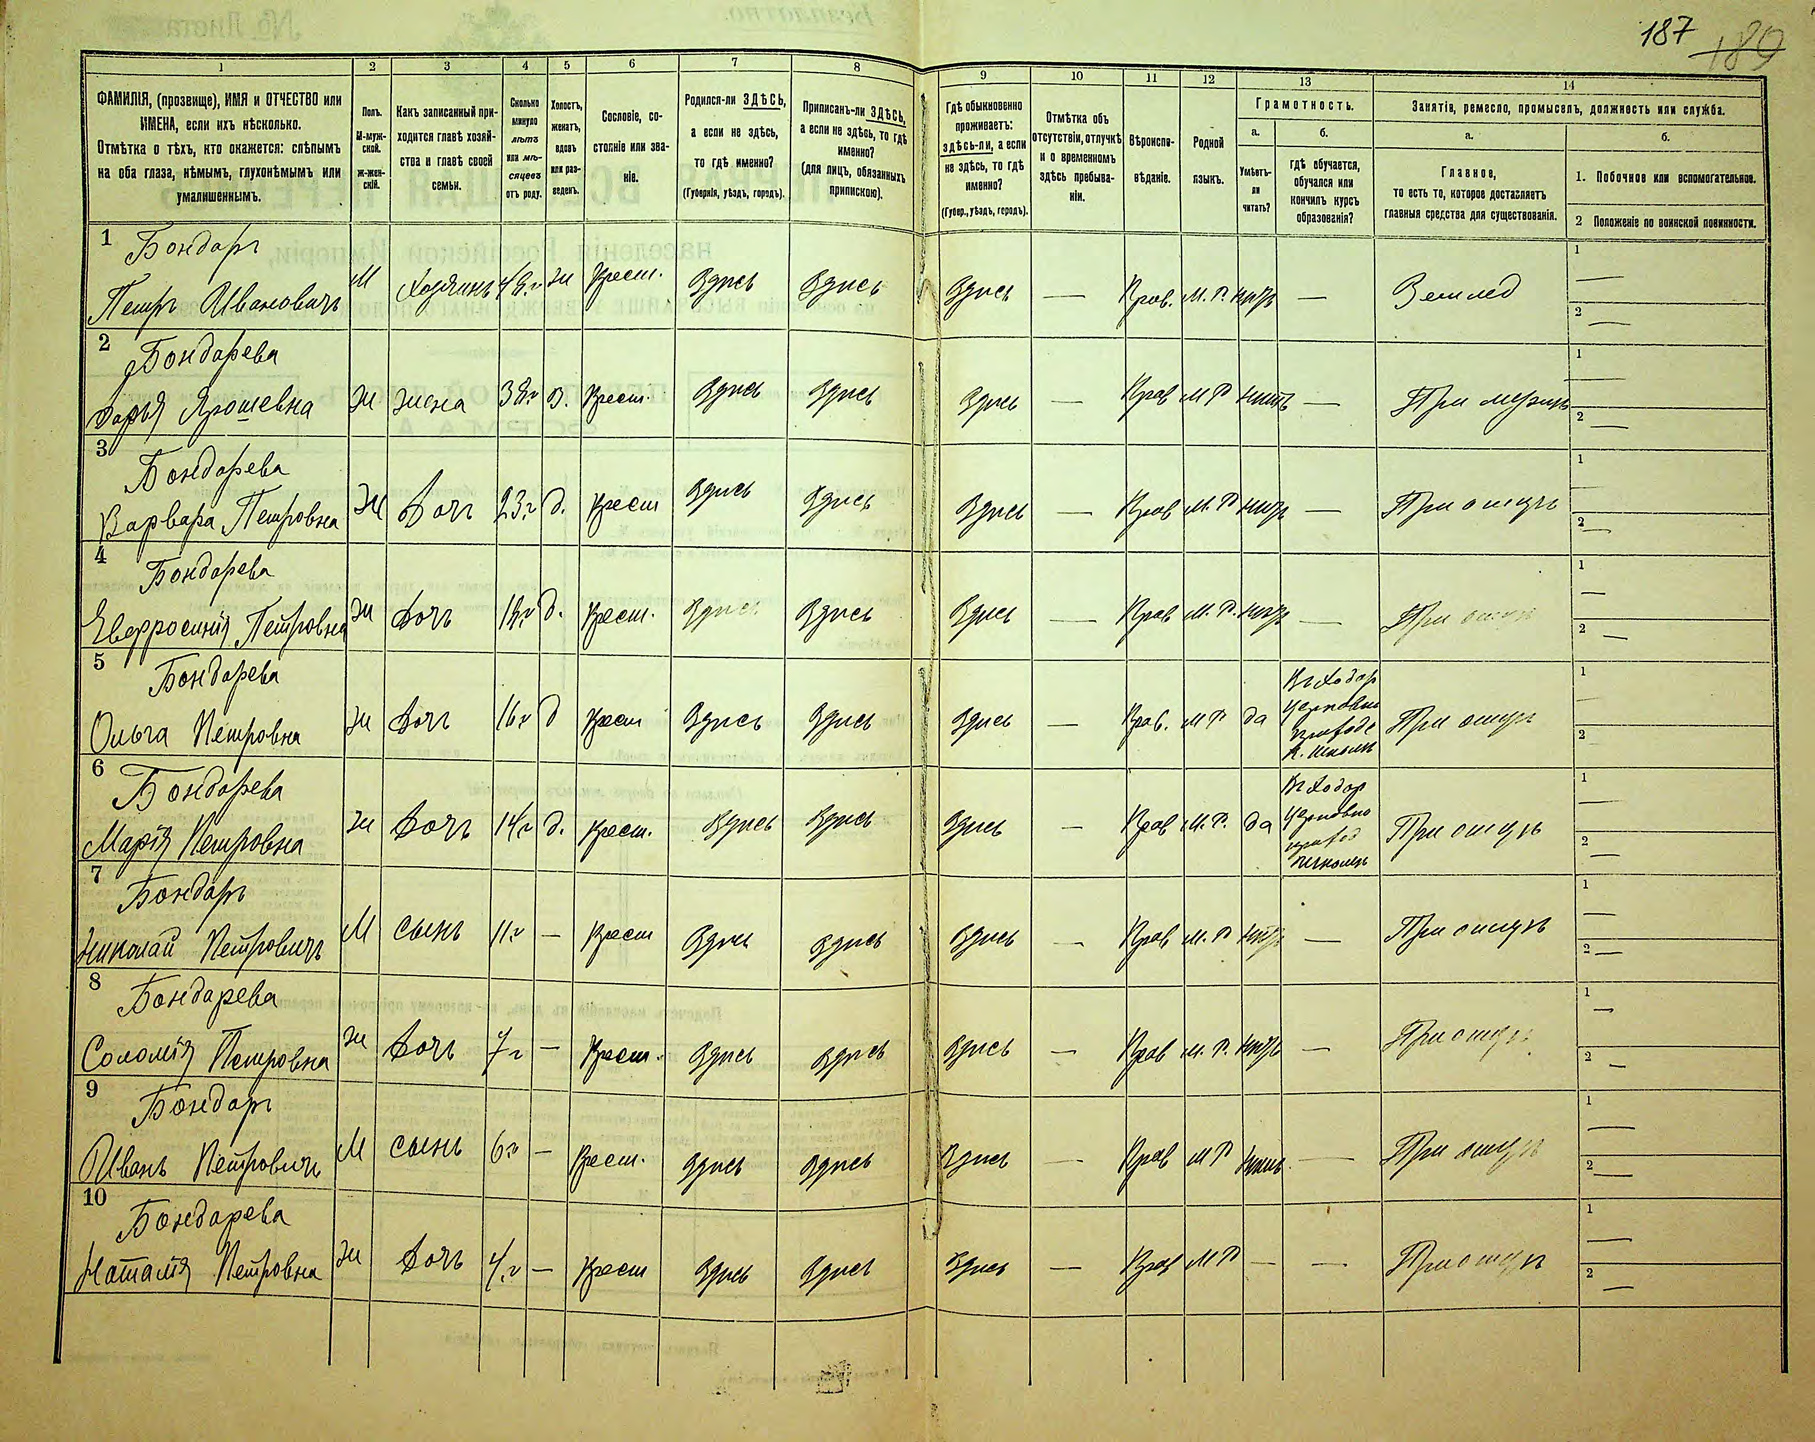 187 189
1 2 3 4 5 6 7 8 9 10 11 12 13 14
ФАМИЛІЯ, (прозвище), ИМЯ и ОТЧЕСТВО или
ИМЕНА, если ихъ нѣсколько.
Отмѣтка о тѣхъ, кто окажется: слѣпымъ
на оба глаза, нѣмымъ, глухонѣмымъ или
умалишеннымъ.
Полъ.
М-муж-
ской.
ж-жен-
скій.
Какъ записанный при-
ходится главѣ хозяй-
ства и главѣ своей
семьи.
Сколько
минуло
лѣтъ
или мѣ-
сяцевъ
отъ роду.
Холостъ,
женатъ,
вдовъ
или раз-
веденъ.
Сословіе, со-
стояніе или зва-
ніе.
Родился-ли ЗДѢСЬ,
а если не здѣсь,
то гдѣ именно?
(Губернія, уѣздъ, городъ).
Приписанъ-ли ЗДѢСЬ,
а если не здѣсь, то гдѣ
именно?
(для лицъ, обязанныхъ
припискою).
Гдѣ обыкновенно
проживаетъ:
здѣсь-ли, а если
не здѣсь, то гдѣ
именно?
(Губер., уѣздъ, городъ).
Отмѣтка объ
отсутствіи, отлучкѣ
и о временномъ
здѣсь пребыва-
ніи.
Вѣроиспо-
вѣданіе.
Родной
языкъ.
Грамотность.
а.
Умѣетъ-
ли
читать?
б.
гдѣ обучается,
обучался или
кончилъ курсъ
образованія?
Занятіе, ремесло, промыселъ, должность или служба.
а.
Главное,
то есть то, которое доставляетъ
главныя средства для существованія.
б.
1. Побочное или вспомогательное.
2 Положеніе по воинской повинности.
1 Бондарь
Петръ Ивановичъ М Хозяинъ ж Крест. Здѣсь Здѣсь Здѣсь — Прав. М. Р. — Землед 1 — 2 —
2 Бондарева
Дарья Ярошевна ж жена 38 г з. Крест. Здѣсь Здѣсь Здѣсь — Прав М Р нѣтъ — При мужѣ 1 — 2 —
3 Бондарева
Варвара Петровна ж Дочь 23 г д. Крест Здѣсь Здѣсь Здѣсь — Прав М. Р нѣтъ — При отцѣ 1 — 2 —
4 Бондарева
Евфросинія Петровна ж Дочь д. Крест. Здѣсь Здѣсь Здѣсь — Прав М. Р. нѣтъ — При отцѣ 1 — 2 —
5 Бондарева
Ольга Петровна ж Дочь 16 г д Крест Здѣсь Здѣсь Здѣсь — Прав. М Р да Въ Ходор
Церковно
приход
школѣ При отцѣ 1 — 2 —
6 Бондарева
Марія Петровна ж Дочь 14 г д. Крест. Здѣсь Здѣсь Здѣсь — Прав М. Р. да Въ Ходор
Церковно
приход
школѣ При отцѣ 1 — 2 —
7 Бондарь
Николай Петровичъ М сынъ 11 г — Крест Здѣсь Здѣсь Здѣсь — Прав М. Р нѣтъ — При отцѣ 1 — 2 —
8 Бондарева
Соломія Петровна ж Дочь 7 г — Крест. Здѣсь Здѣсь Здѣсь — Прав М. Р. нѣтъ — При отцѣ 1 — 2 —
9 Бондарь
Иванъ Петровичъ М сынъ 6 г — Крест. Здѣсь Здѣсь Здѣсь — Прав М Р нѣтъ — При отцѣ 1 — 2 —
10 Бондарева
Наталія Петровна ж Дочь 4 г — Крест Здѣсь Здѣсь Здѣсь — Прав М Р — — При отцѣ 1 — 2 —